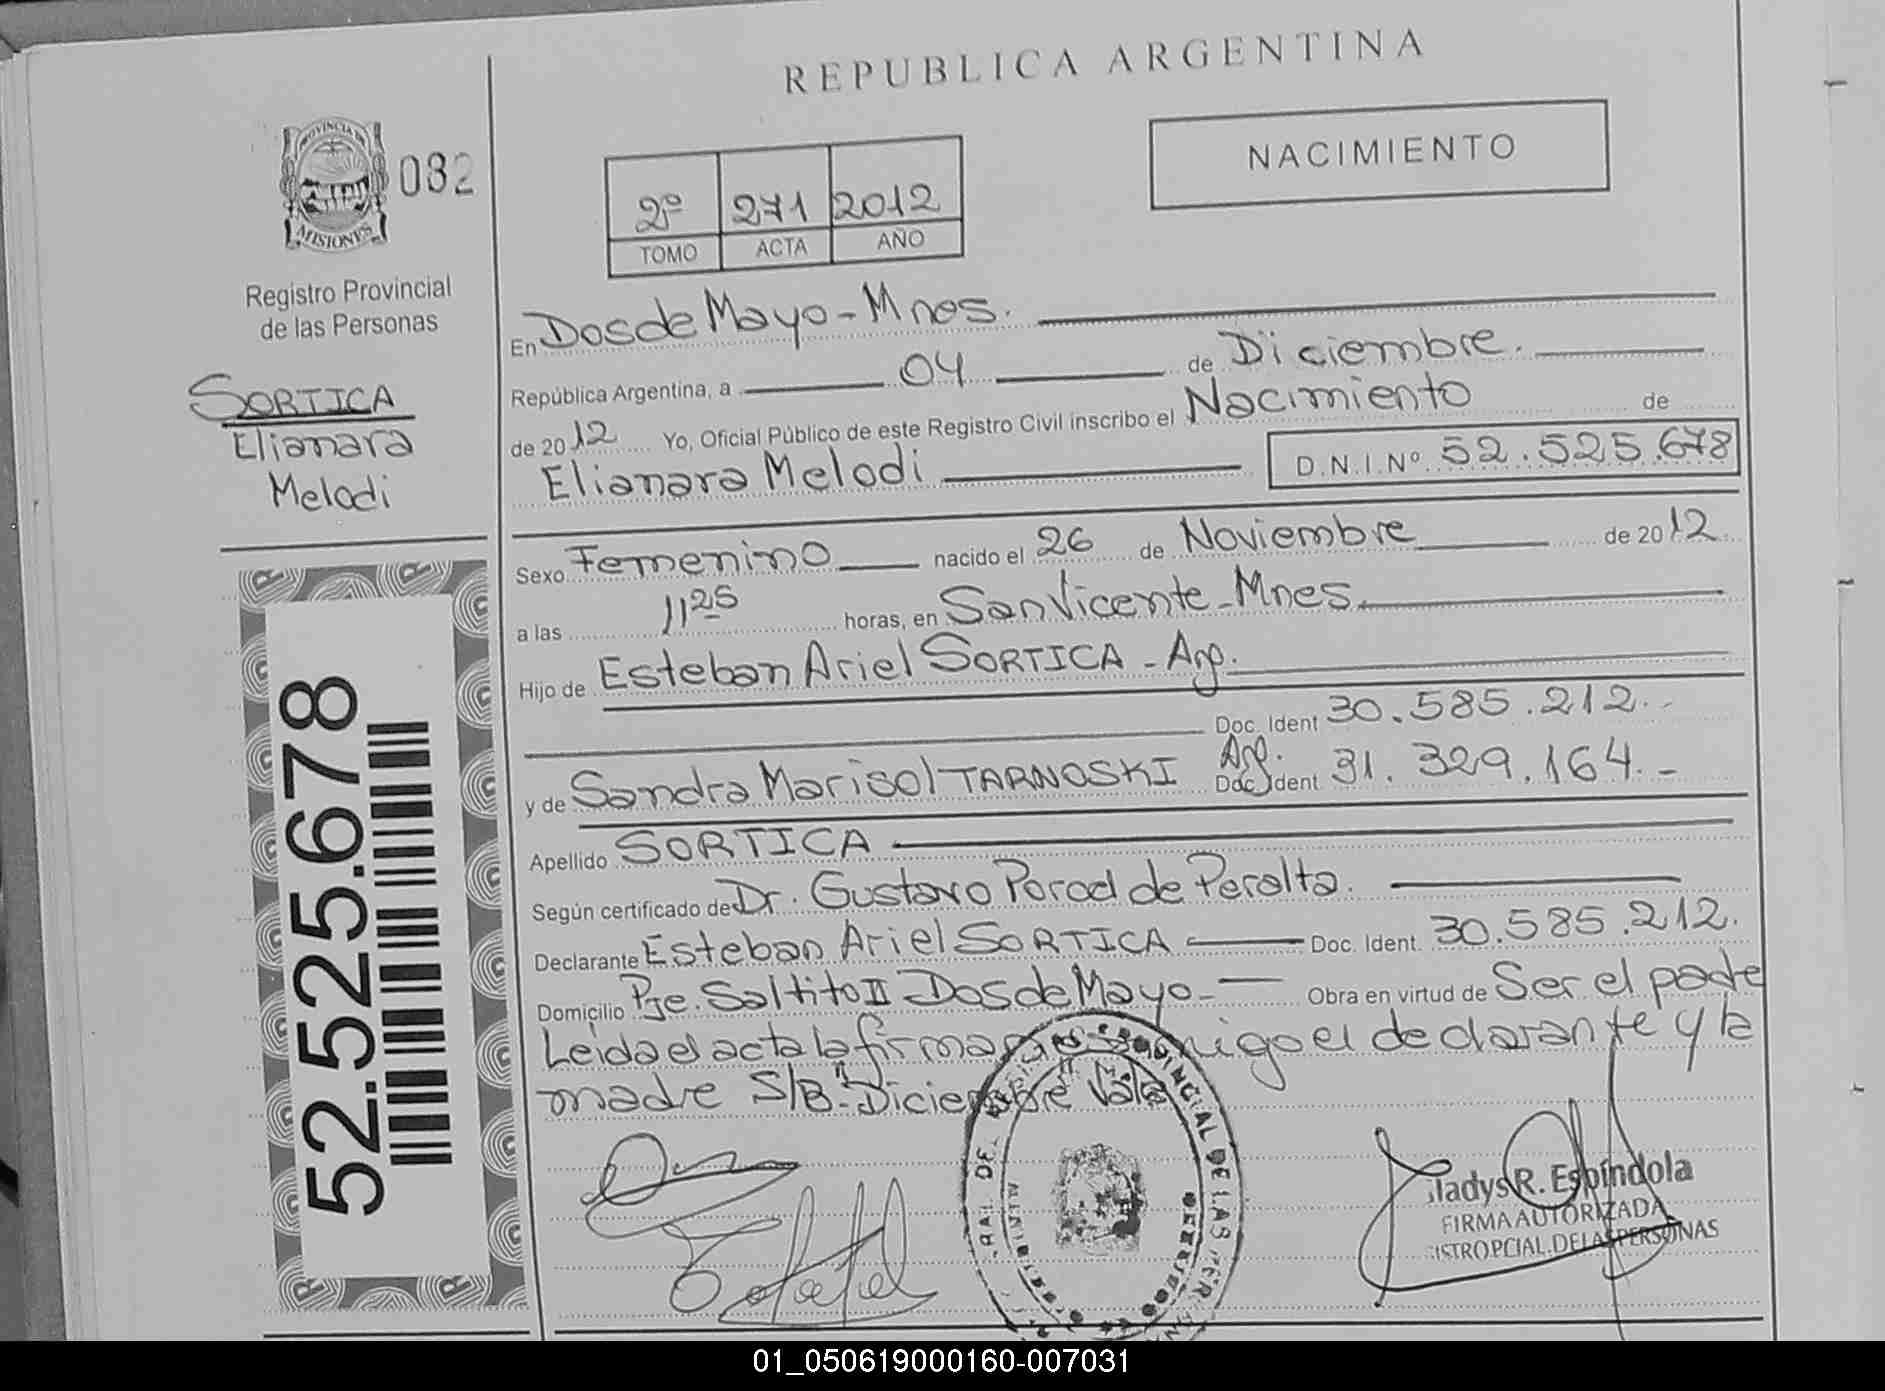 REPUBLICA ARGENTINA
PROVINCIA DE
MISIONES
082
Registro Provincial
de las Personas
SORTICA
Elianara
Melodi
52.525.678
NACIMIENTO
2º 271 2012
TOMO ACTA AÑO
En Dos de Mayo - Mnes.
República Argentina, a 04 de Diciembre.
de 2012 Yo, Oficial Público de este Registro Civil inscribo el Nacimiento de
Elianara Melodi D.N.I.Nº 52.525.678
Sexo Femenino nacido el 26 de Noviembre de 2012
a las 11 25 horas, en San Vicente - Mnes.
Hijo de Esteban Ariel SORTICA - Arg.
Doc. Ident 30.585.212.-
y de Sandra Marisol TARNOSKI Arg. Doc. Ident 31.329.164.-
Apellido SORTICA
Según certificado de Dr. Gustavo de Peralta.
Declarante Esteban Ariel SORTICA Doc. Ident. 30.585.212.
Domicilio Pje. Saltito II Dos de Mayo - Obra en virtud de Ser el padre
Leída el acta la firman conmigo el declarante y la
madre S/B "Diciembre" Vale
PROVINCIAL DE LAS
Gladys R. Espíndola
FIRMA AUTORIZADA
PCIAL. DE LAS PERSONAS
01_050619000160-007031